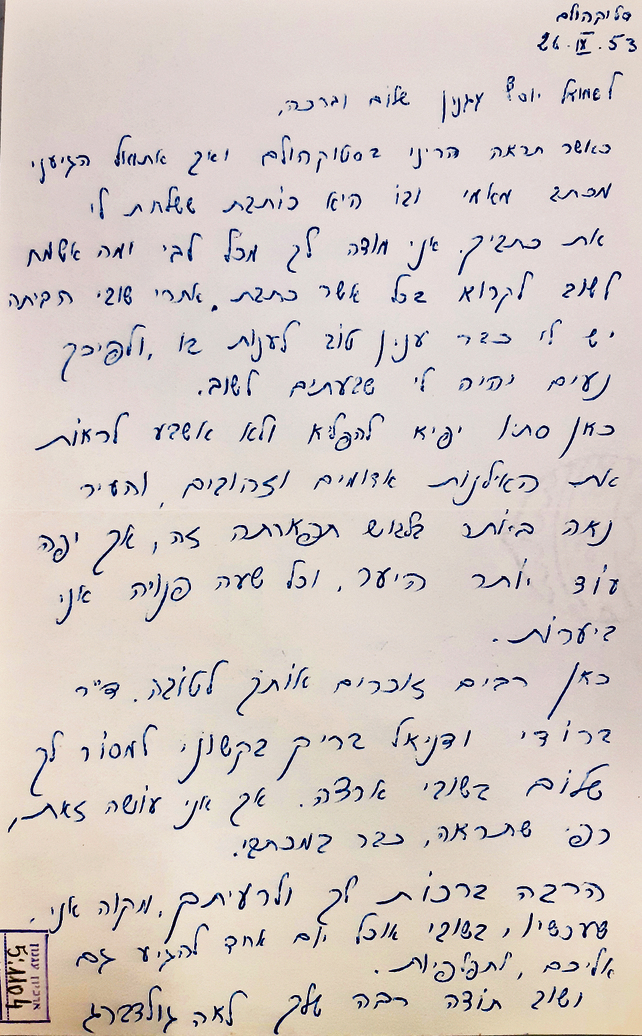 סטוקהולם
26.IX.53
לשמואל יוסף עגנון שלום וברכה,
כאשר תראה הריני בסטוקהולם ואך אתמול הגיעני
מכתב מאמי ובו היא כותבת ששלחת לי
את כתביך. אני מודה לך מכל לבי ומה אשמח
לשוב לקרוא בכל אשר כתבת. אחרי שובי הביתה
יש לי כבר ענין טוב לענות בו, ולפיכך
נעים יהיה לי שבעתים לשוב.
כאן סתיו יפיא להפליא ולא אשבע לראות
את האילנות אדומים וזהובים, והעיר
נאה ביותר בלבוש תפארתה זה, אך יפה
עוד יותר היער. וכל שעה פנויה אני
ביערות.
כאן רבים זוכרים אותך לטובה. ד"ר
ברודי ודניאל בריק בקשוני למסור לך
שלום בשובי ארצה. אך אני עושה זאת,
כפי שתראה, כבר במכתבי.
הרבה ברכות לך ולרעיתך. מקוה אני,
שעכשיו, בשובי אוכל יום אחד להגיע גם
אליכם, לתלפיות.
ושוב תודה רבה שלך לאה גולדברג
ארכיון עגנון
5:1104